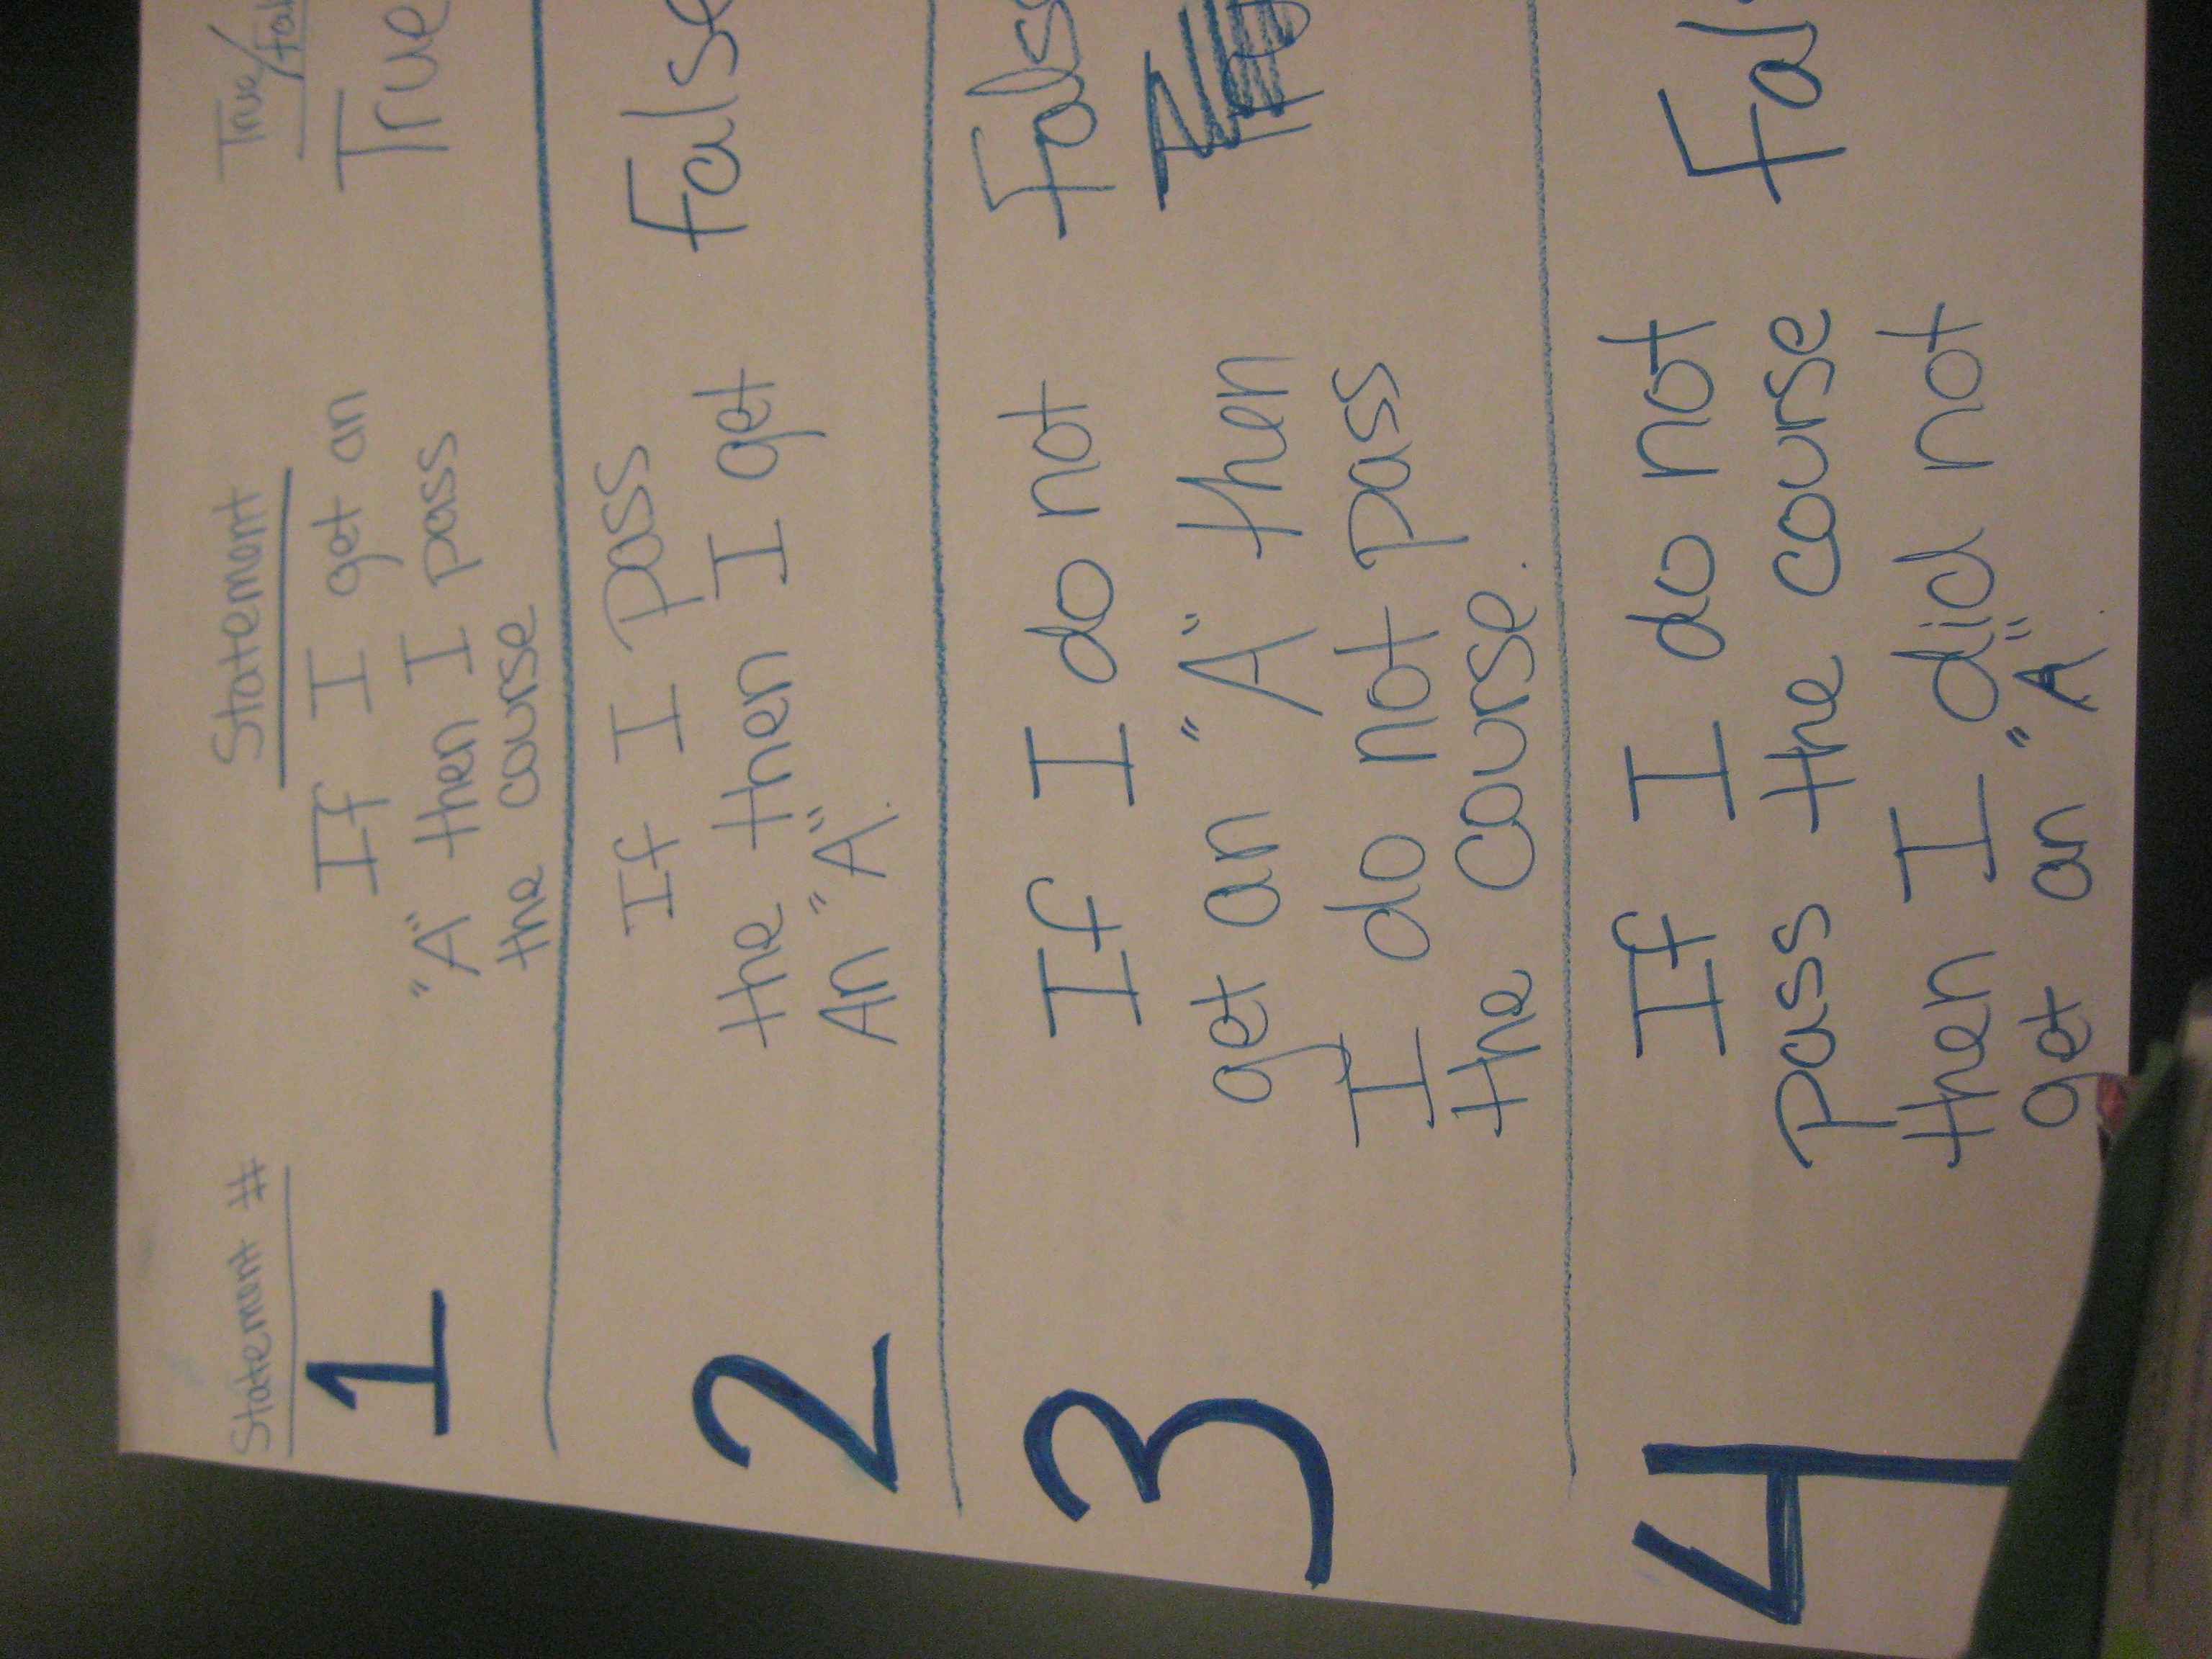 Statement # Statement True/Fal
1 If I get an True
"A" then I pass
the course
2 If I pass False
the then I get
An "A".
3 If I do not Fals
get an "A" then
I do not pass
the course.
4 If I do not Fal
pass the course
then I did not
get an "A".